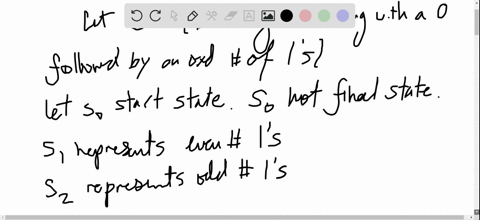 Let ing with a 0
followed by an odd # of 1's}
let s0 start state. S0 not final state.
S1 represents even # 1's
S2 represents odd # 1's